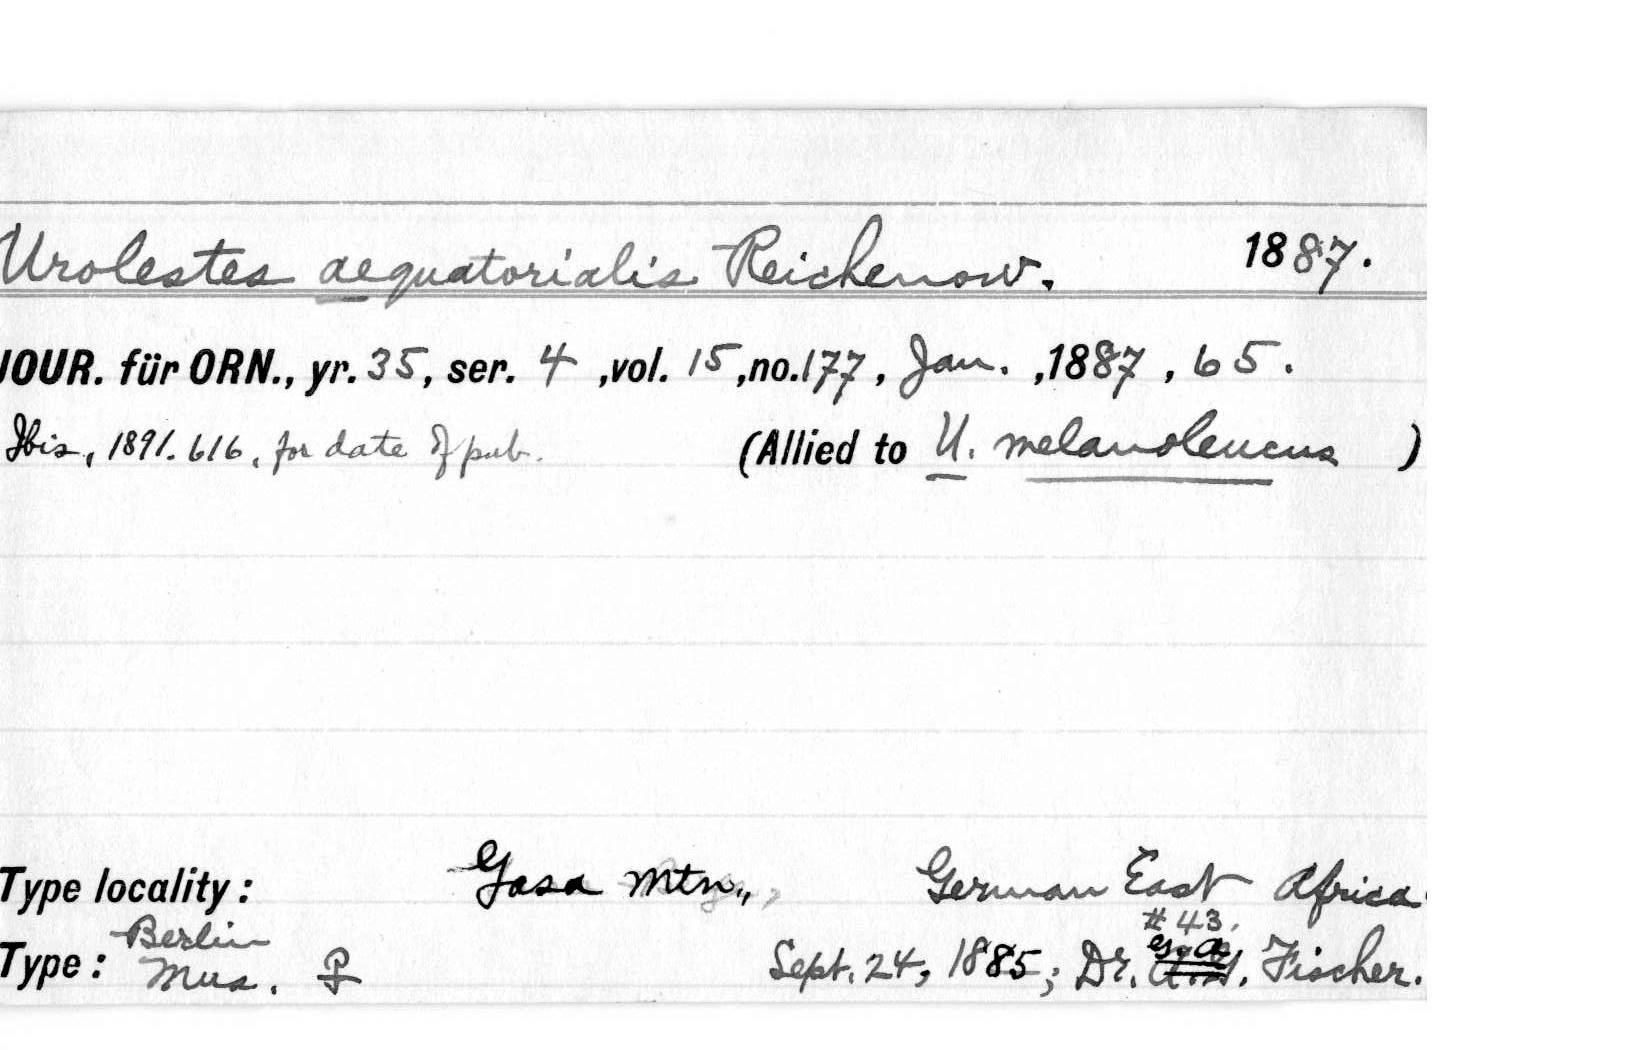 Urolestes aequatorialis Reichenow. 1887.
JOUR. für ORN., yr. 35, ser. 4 ,vol. 15 ,no. 177 , Jan. ,1887 , 65 .
Ibis, 1891. 616, for date of pub. (Allied to U. melanoleucus )
Type locality : Gasa Mtn., German East Africa
# 43.
Type : Berlin Mus. ♀ Sept. 24, 1885; Dr. G. A. Fischer.